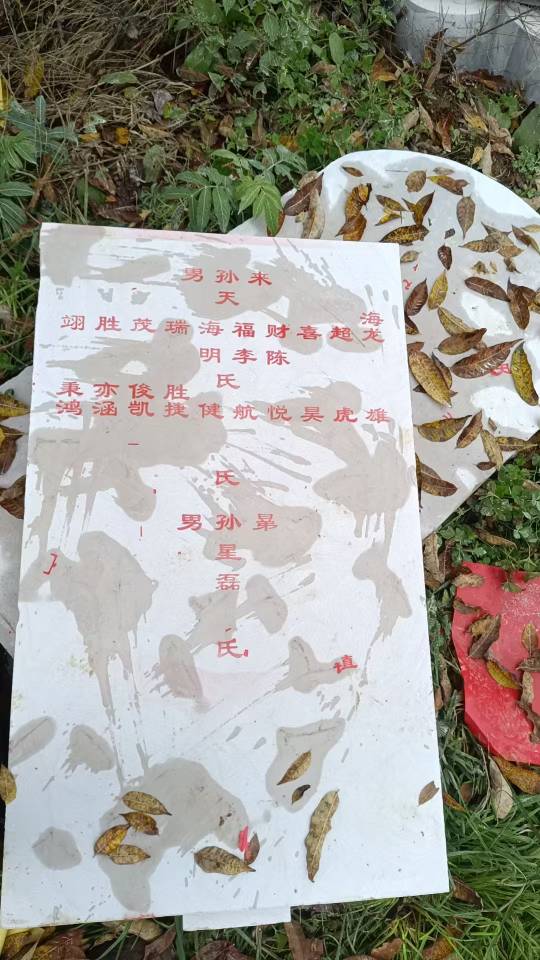 男孙来
天
翊胜茂瑞海福财喜超海龙
明李陈
氏
秉亦俊胜
鸿涵凯捷健航悦昊虎雄
氏
男孙晜
星
磊
氏
填